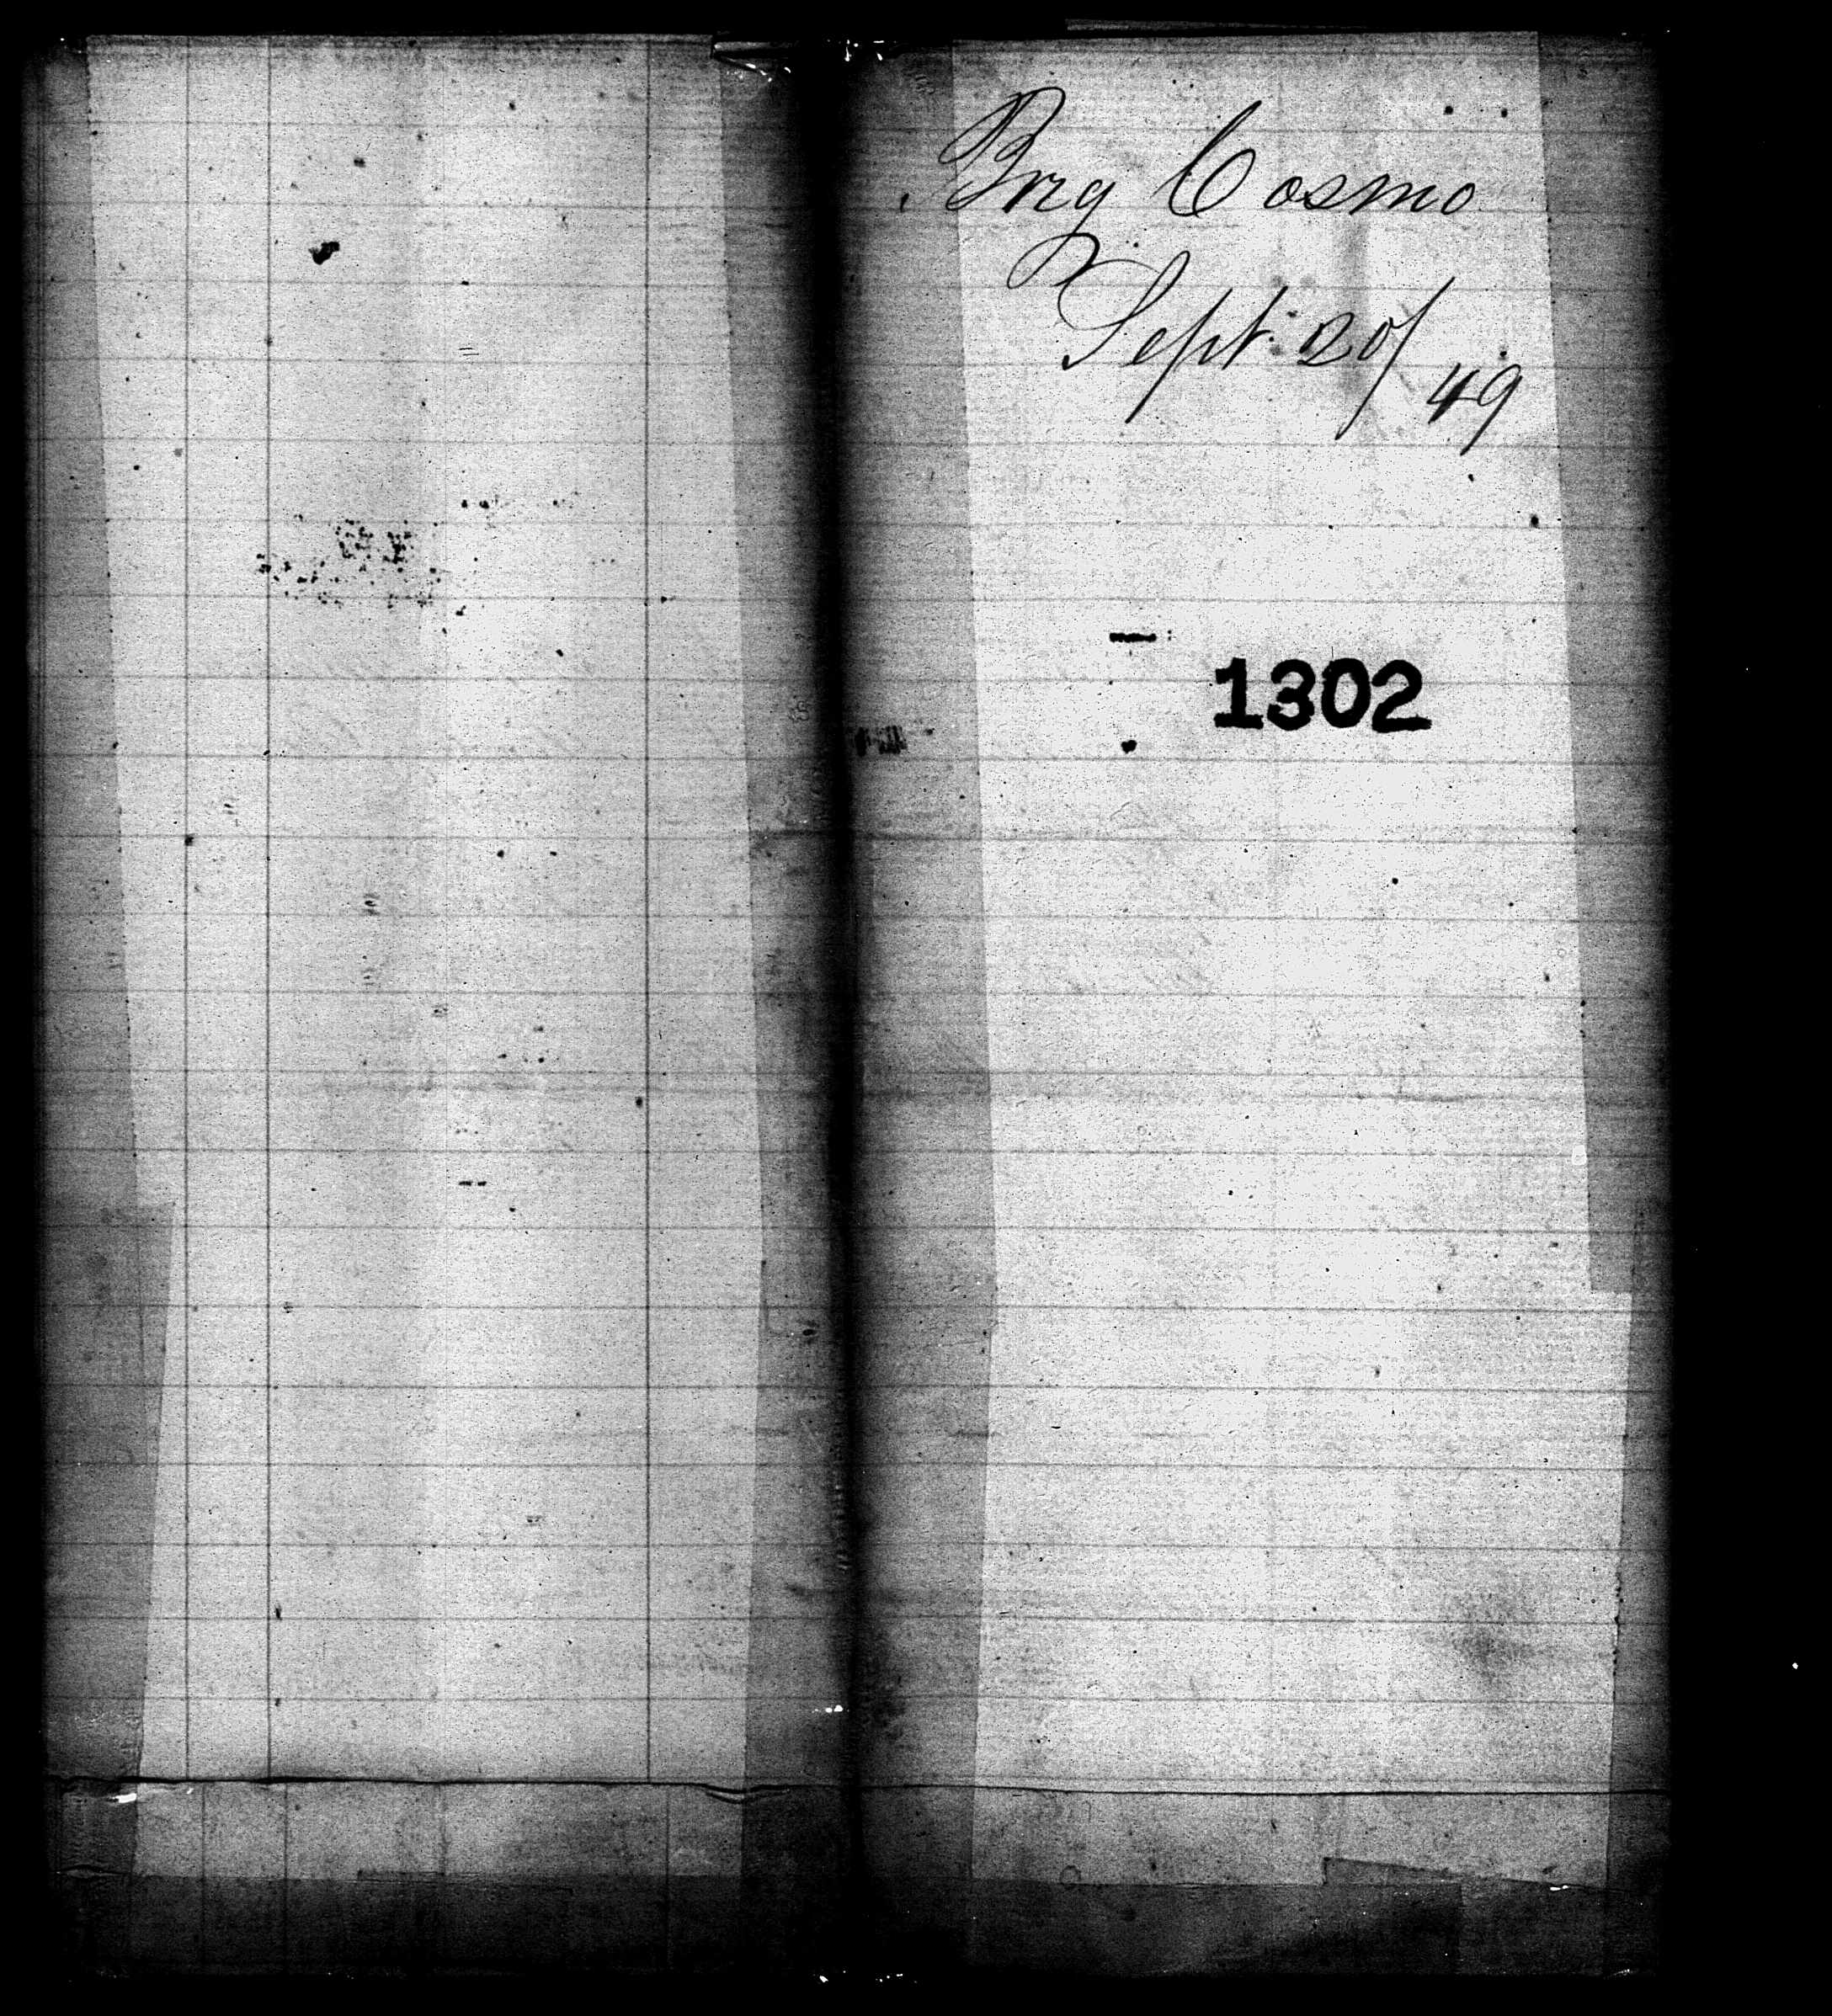 Brig Cosmo
Sept. 20/
49
1302